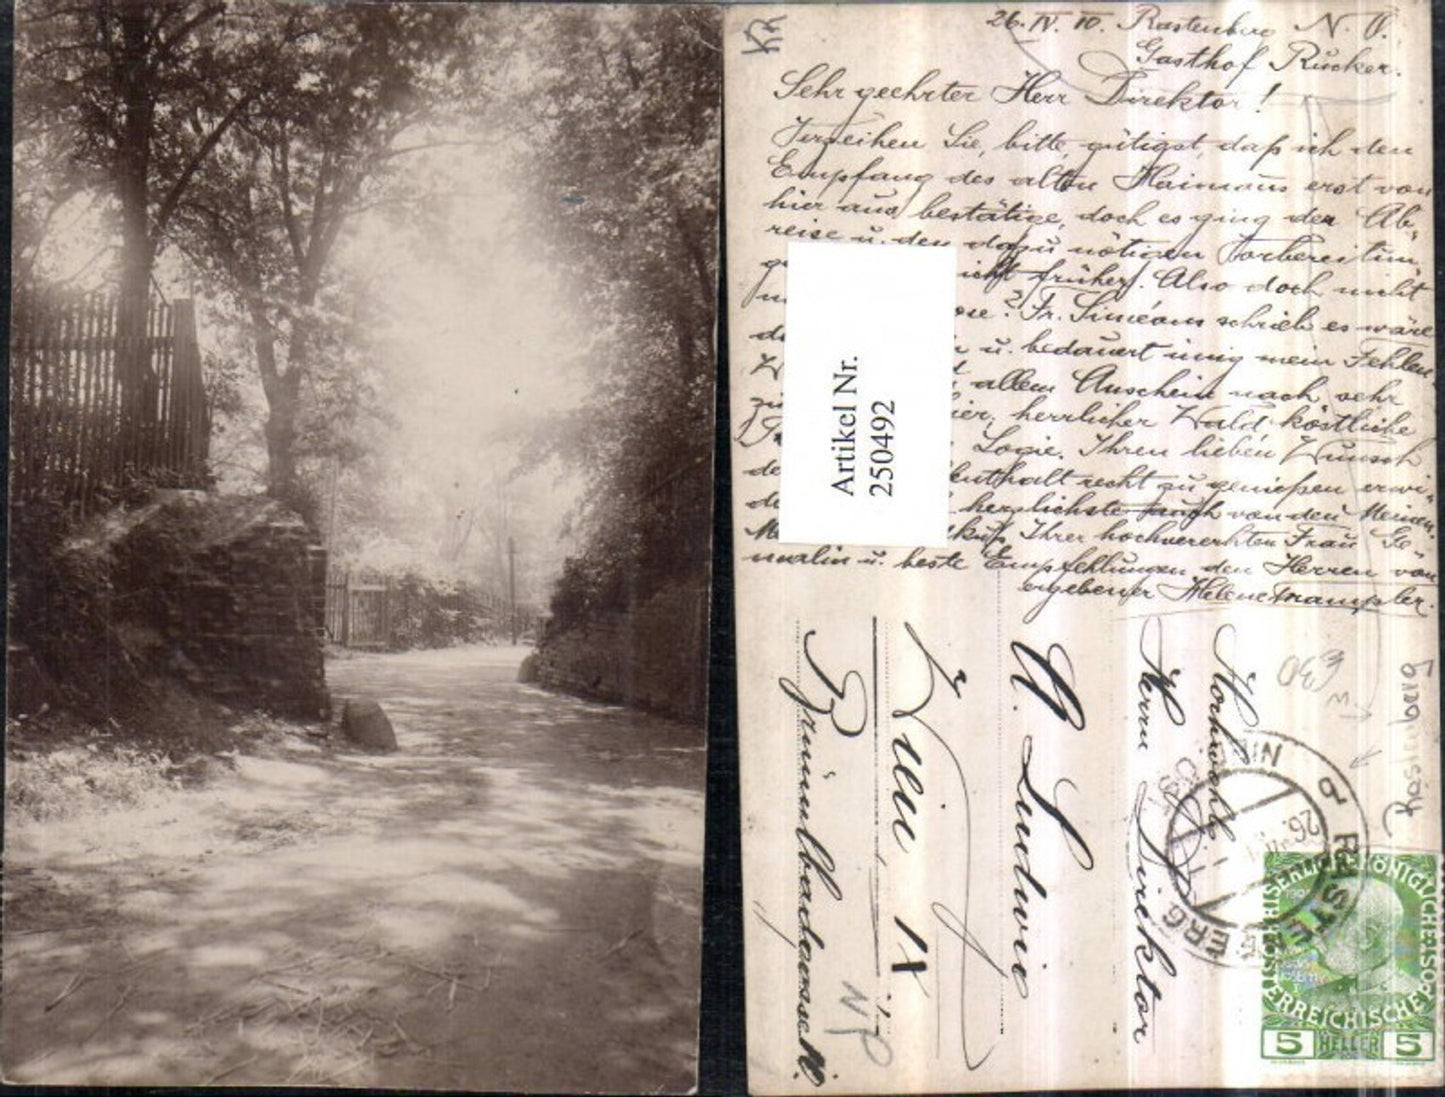 26. IV. 10. Rastenberg N. Ö.
Gasthof Rücker.
Sehr geehrter Herr Direktor!
Verzeihen Sie, bitte, gütigst, daß ich den
Empfang des alten Haimans erst von
hier aus bestätige, doch es ging der Ab-
reise u. den dazu nötigen Vorbereitun-
nicht früher. Also doch nicht
? Fr. Siméons schrieb es wäre
u. bedauert innig mein Fehlen.
allem Anschein nach sehr
hier, herrlicher Wald köstliche
Logie. Ihren lieben Wunsch
recht zu genießen erwi-
herzlichste auch von den Meinen.
Ihrer hochverehrten Frau Ge-
malin u. beste Empfehlungen den Herren von
ergebenster Helene Trampler.
Artikel Nr.
250492
Hochwohlg.
Herrn Direktor
A. Ludwig
Wien IX
Brünnlbadgasse
NP
Rastenberg
RASTENBERG
26.
KAISERLICHE KÖNIGLICHE POST
ÖSTERREICHISCHE
5 HELLER 5